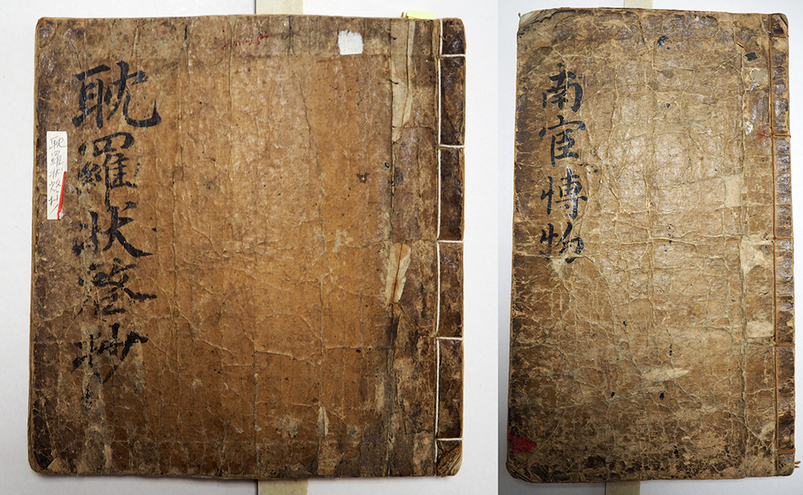 耽羅狀啓抄
耽羅狀啓抄
南宦博物